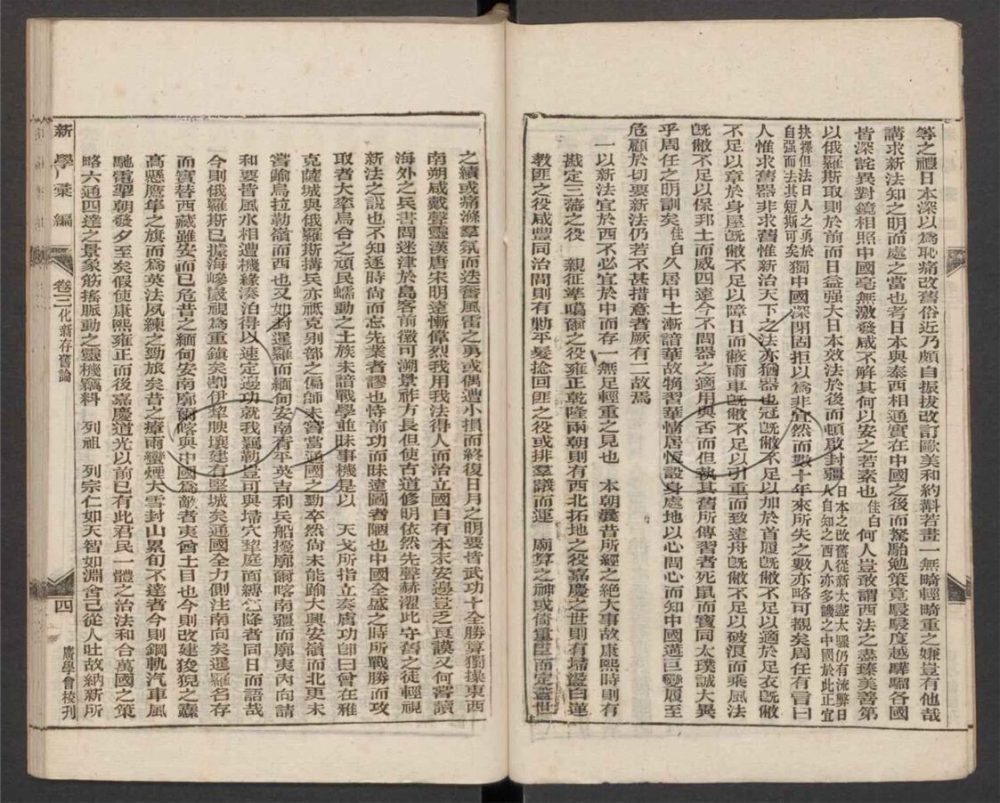 等之禮日本深以爲恥痛改舊俗近乃頗自振拔改訂歐美和約斠若畫一無畸輕畸重之嫌豈有他哉
講求新法知之明而處之當也者日本與泰西相通實在中國之後而駑駘勉策竟駸駸度越驊騮各國
皆深詫異對鏡相照中國毫無激發咸不解其何以安之若素也佳白何人豈敢謂西法之盡臻美善第
以俄羅斯取則於前而日益强大日本效法於後而頓啟封疆日本之改舊從新太驟太驟仍有流弊日人自知之西人亦多譏之中國於此正宜
抉擇但法日人之勇於自强而去其短斯可矣獨中國深閉固拒以爲非宜然而數十年來所失之數亦略可覩矣周任有言曰
人惟求舊器非求舊惟新治天下之法亦猶器也冠旣敝不足以加於首履旣敝不足以適於足衣旣敝
不足以章於身屋旣敝不足以障日而蔽雨車旣敝不足以引重而致遠舟旣敝不足以破浪而乘風法
旣敝不足以保邦土而威四遠今不問器之適用與否而但執其舊所傳習者死鼠而寶同太璞誠大異
乎周任之明訓矣佳白久居中土漸諳華故習華情居恆設身處地以心問心而知中國選已變履至
危顧於切要新法仍若不甚措意者厥有二故焉
一以新法宜於西不必宜於中而存一無足輕重之見也 本朝曩昔所經之絕大事故康熙時則有
戡定三藩之役 親征準噶爾之役雍正乾隆兩朝則有西北拓地之役嘉慶之世則有埽盪白蓮
教匪之役咸豐同治間則有勦平髮捻回匪之役或排羣議而運 廟算之神或倚重臣而定蓋世
之績或痛滌羣氛而迭奮風雷之勇或偶遭小損而終復日月之明要皆武功十全勝算獨操東西
南朔咸戴聲靈漢唐宋明遠慚偉烈我用我法得人而治立國自有本末安邊豈乏良謨又何嘗讀
海外之兵書問迷津於島客前徽可溯景祚方長但使古道修明依然先聲赫濯此守舊之徒輕視
新法之說也不知逐時尚而忘先業者謬也恃前功而昧遠圖者陋也中國全盛之時所戰勝而攻
取者大率烏合之頑民蠕動之土族未諳戰學並昧事機是以 天戈所指立奏膚功卽曰曾在雅
克薩城與俄羅斯搆兵亦祇克别部之偏師未嘗當通國之勁卒然尙未能踰大興安嶺而北更未
嘗踰烏拉勒嶺而西也又如封暹羅而緬甸安南膏平英吉利兵船擾廓爾喀南疆而廓夷內向請
和要皆風水相遭機緣湊泊得以速定邊功就我羈勒豈可與埽穴犂庭面縛乞降者同日而語哉
今則俄羅斯已據海峥崴視爲重鎭矣割伊犂腴壤建有堅城矣通國全力側注南向矣暹羅名存
而實替西藏雖安而已危昔之緬甸安南廓爾喀與中國爲敵者夷酋土目也今則改建狻猊之纛
高懸鷹隼之旗而爲英法夙練之勁旅矣昔之瘴雨蠻煙大雪封山累旬不達者今則鋼軌汽車風
馳電掣朝發夕至矣假使康熙雍正而後嘉慶道光以前已有此君民一體之治法和合萬國之策
略六通四達之景象筋搖脈動之靈機竊料 列祖 列宗仁如天智如淵舍己從人吐故納新所
新學彙編
卷三化新存舊論
四
廣學會校刊